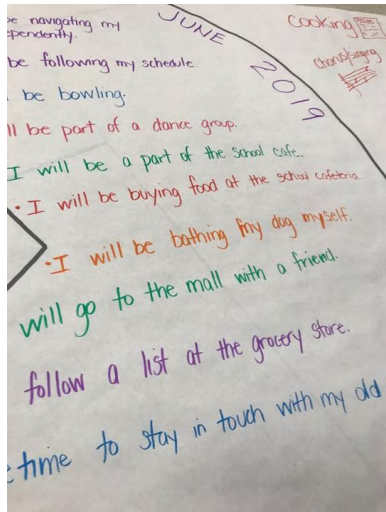 be navigating my
pendently.
JUNE
2019
Cooking
chorus/singing
be following my schedule.
be bowling.
ll be part of a dance group.
I will be a part of the school cafe.
• I will be buying food at the school cafeteria
• I will be bathing my dog myself.
will go to the mall with a friend.
follow a list at the grocery store.
time to stay in touch with my old